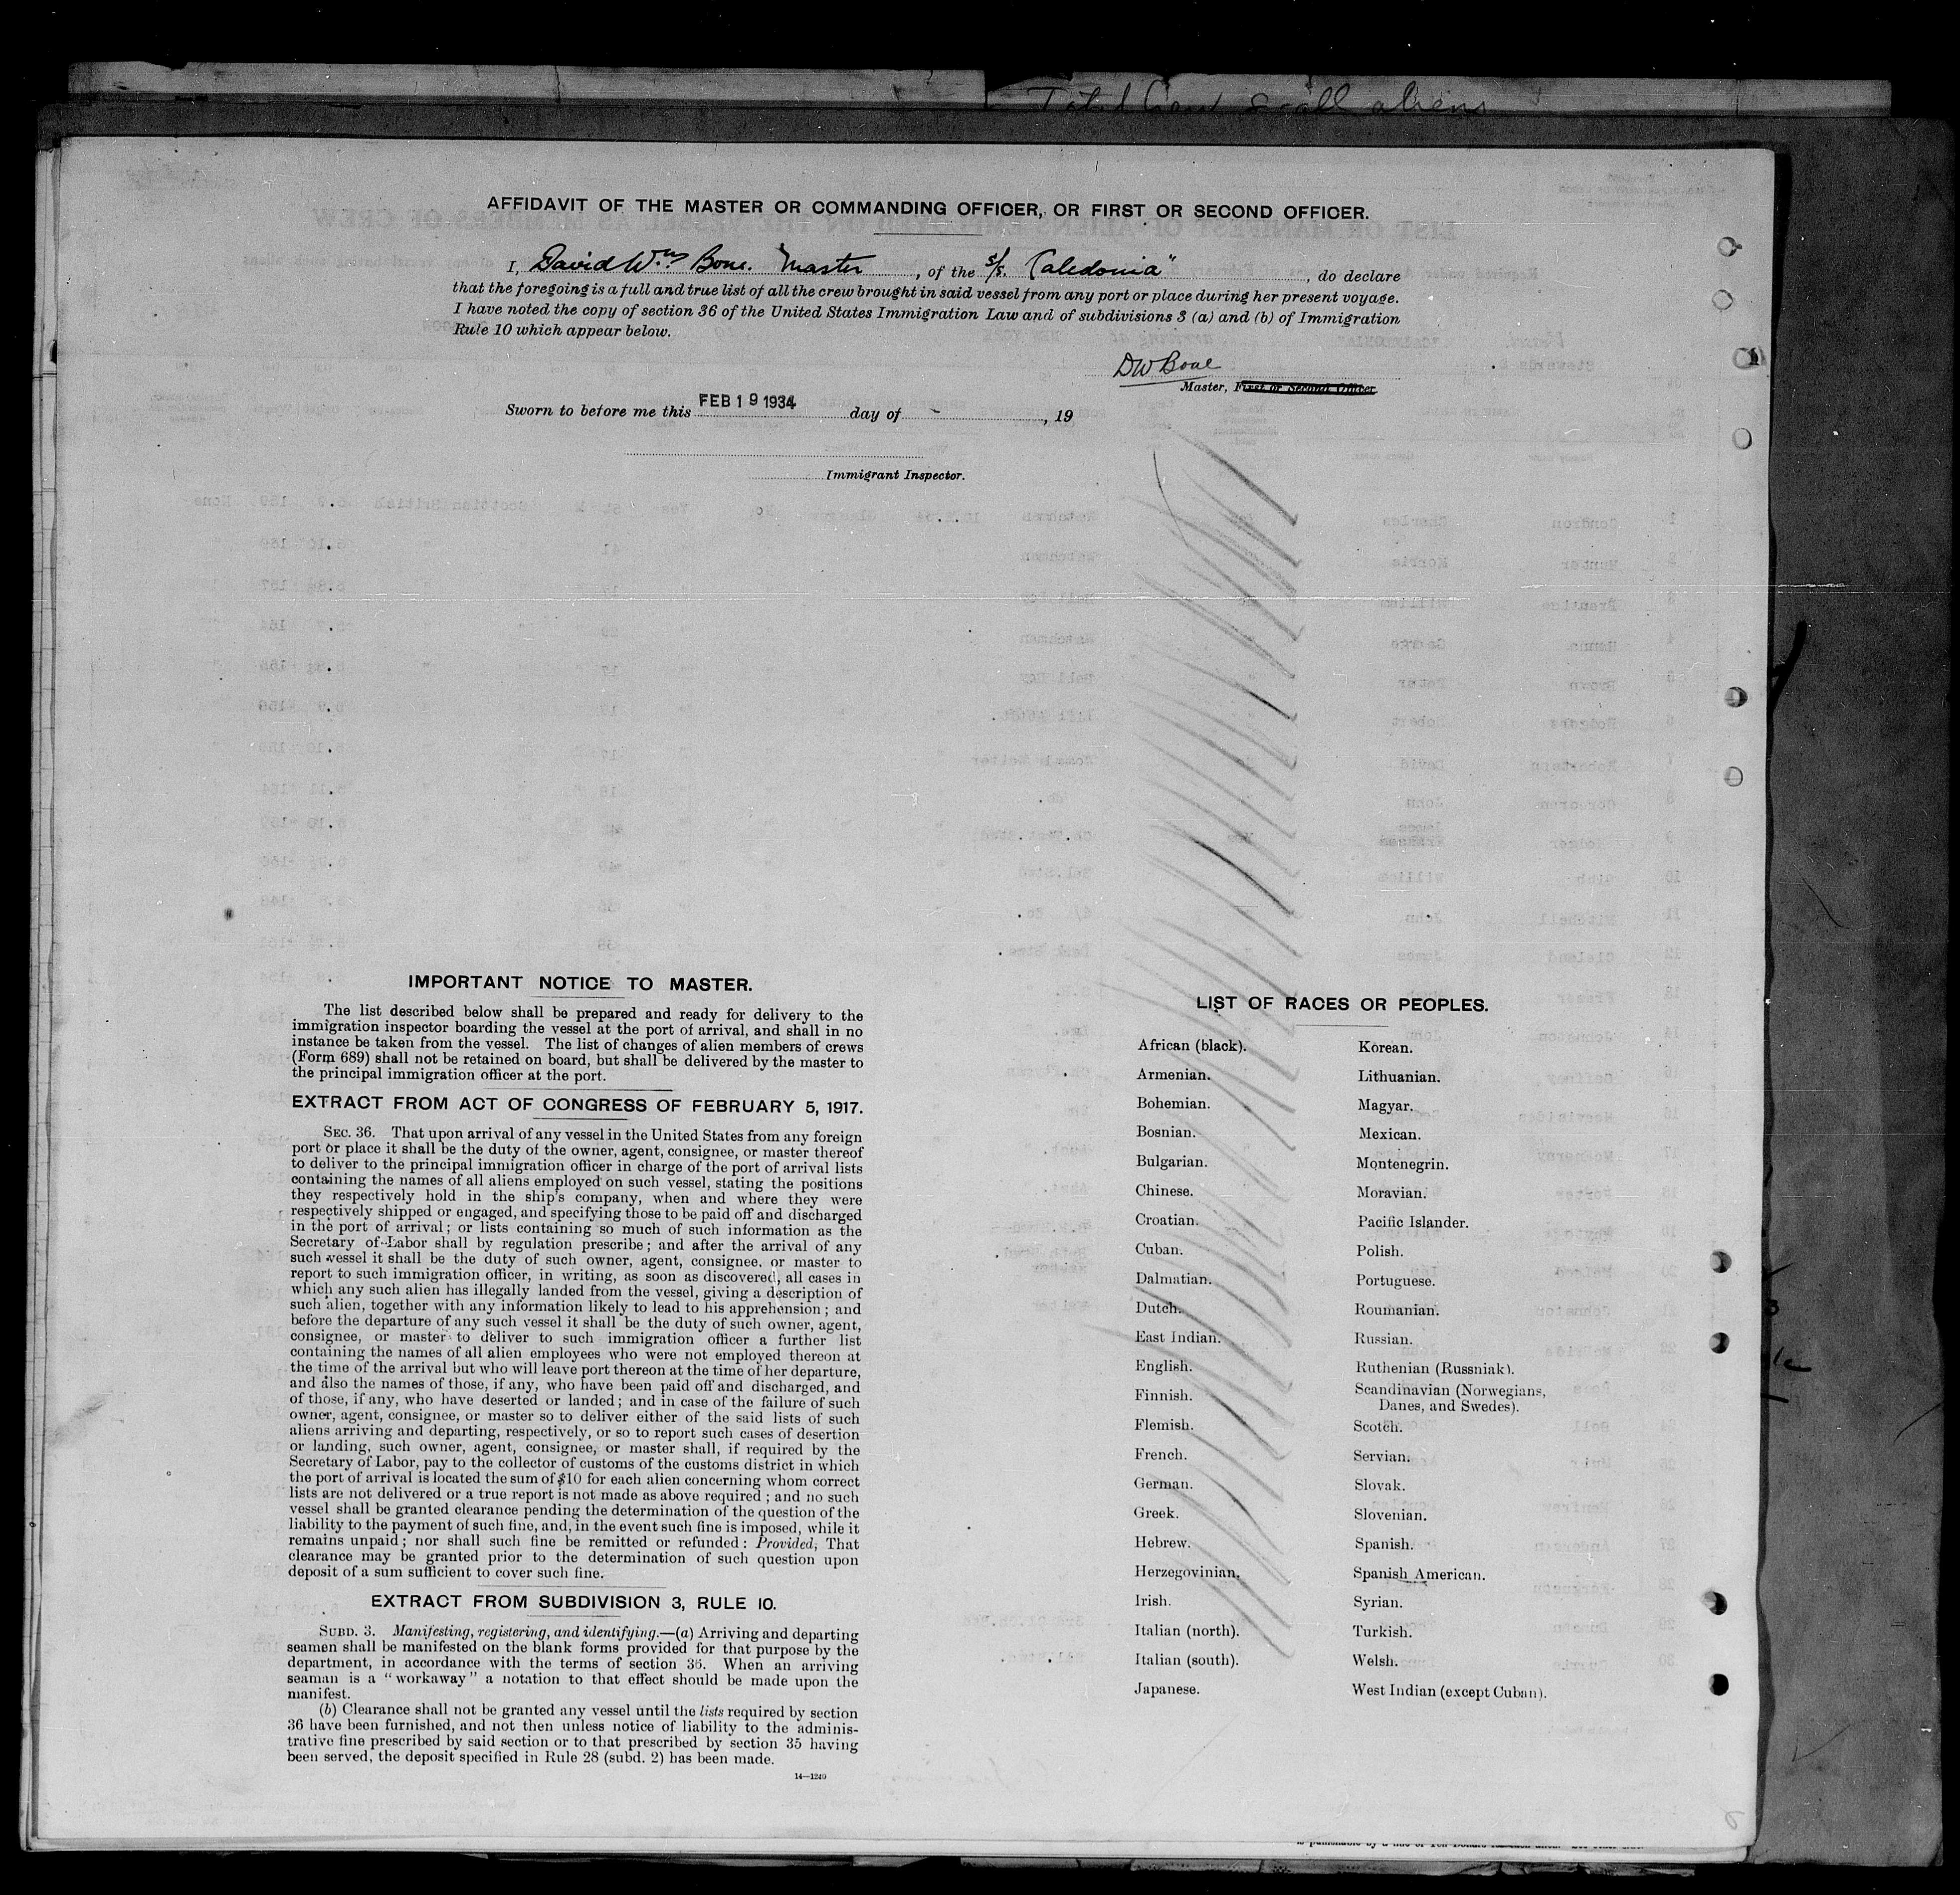 Total Crew all aliens
AFFIDAVIT OF THE MASTER OR COMMANDING OFFICER, OR FIRST OR SECOND OFFICER.
I, David Wm. Bone. Master, of the s/s. Caledonia", do declare
that the foregoing is a full and true list of all the crew brought in said vessel from any port or place during her present voyage.
I have noted the copy of section 36 of the United States Immigration Law and of subdivisions 3 (a) and (b) of Immigration
Rule 10 which appear below.
DW Bone
Master, First or Second Officer
Sworn to before me this FEB 19 1934 day of - , 19
Immigrant Inspector.
IMPORTANT NOTICE TO MASTER.
The list described below shall be prepared and ready for delivery to the
immigration inspector boarding the vessel at the port of arrival, and shall in no
instance be taken from the vessel. The list of changes of alien members of crews
(Form 689) shall not be retained on board, but shall be delivered by the master to
the principal immigration officer at the port.
EXTRACT FROM ACT OF CONGRESS OF FEBRUARY 5, 1917.
SEC. 36. That upon arrival of any vessel in the United States from any foreign
port or place it shall be the duty of the owner, agent, consignee, or master thereof
to deliver to the principal immigration officer in charge of the port of arrival lists
containing the names of all aliens employed on such vessel, stating the positions
they respectively hold in the ship's company, when and where they were
respectively shipped or engaged, and specifying those to be paid off and discharged
in the port of arrival; or lists containing so much of such information as the
Secretary of Labor shall by regulation prescribe; and after the arrival of any
such vessel it shall be the duty of such owner, agent, consignee, or master to
report to such immigration officer, in writing, as soon as discovered, all cases in
which any such alien has illegally landed from the vessel, giving a description of
such alien, together with any information likely to lead to his apprehension; and
before the departure of any such vessel it shall be the duty of such owner, agent,
consignee, or master to deliver to such immigration officer a further list
containing the names of all alien employees who were not employed thereon at
the time of the arrival but who will leave port thereon at the time of her departure,
and also the names of those, if any, who have been paid off and discharged, and
of those, if any, who have deserted or landed; and in case of the failure of such
owner, agent, consignee, or master so to deliver either of the said lists of such
aliens arriving and departing, respectively, or so to report such cases of desertion
or landing, such owner, agent, consignee, or master shall, if required by the
Secretary of Labor, pay to the collector of customs of the customs district in which
the port of arrival is located the sum of $10 for each alien concerning whom correct
lists are not delivered or a true report is not made as above required; and no such
vessel shall be granted clearance pending the determination of the question of the
liability to the payment of such fine, and, in the event such fine is imposed, while it
remains unpaid; nor shall such fine be remitted or refunded: Provided, That
clearance may be granted prior to the determination of such question upon
deposit of a sum sufficient to cover such fine.
EXTRACT FROM SUBDIVISION 3, RULE 10.
SUBD. 3. Manifesting, registering, and identifying.—(a) Arriving and departing
seamen shall be manifested on the blank forms provided for that purpose by the
department, in accordance with the terms of section 36. When an arriving
seaman is a "workaway" a notation to that effect should be made upon the
manifest.
(b) Clearance shall not be granted any vessel until the lists required by section
36 have been furnished, and not then unless notice of liability to the adminis-
trative fine prescribed by said section or to that prescribed by section 35 having
been served, the deposit specified in Rule 28 (subd. 2) has been made.
14—1240
LIST OF RACES OR PEOPLES.
African (black).
Armenian.
Bohemian.
Bosnian.
Bulgarian.
Chinese.
Croatian.
Cuban.
Dalmatian.
Dutch.
East Indian.
English.
Finnish.
Flemish.
French.
German.
Greek.
Hebrew.
Herzegovinian.
Irish.
Italian (north).
Italian (south).
Japanese.
Korean.
Lithuanian.
Magyar.
Mexican.
Montenegrin.
Moravian.
Pacific Islander.
Polish.
Portuguese.
Roumanian.
Russian.
Ruthenian (Russniak).
Scandinavian (Norwegians,
Danes, and Swedes).
Scotch.
Servian.
Slovak.
Slovenian.
Spanish.
Spanish American.
Syrian.
Turkish.
Welsh.
West Indian (except Cuban).